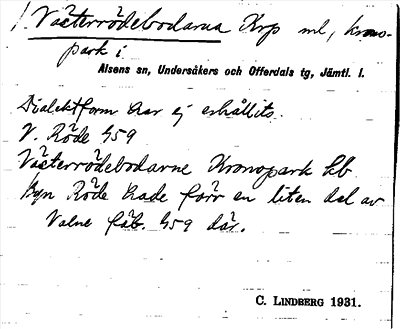 Västerrödebodarna Krp ml, krono-
park i
Alsens sn, Undersåkers och Offerdals tg, Jämtl. l.
Dialektform har ej erhållits.
V. Röde 459
Västerrödebodarne Kronopark kb
Byn Röde hade förr en liten del av
Valne fäb. 459 där.
C. LINDBERG 1931.